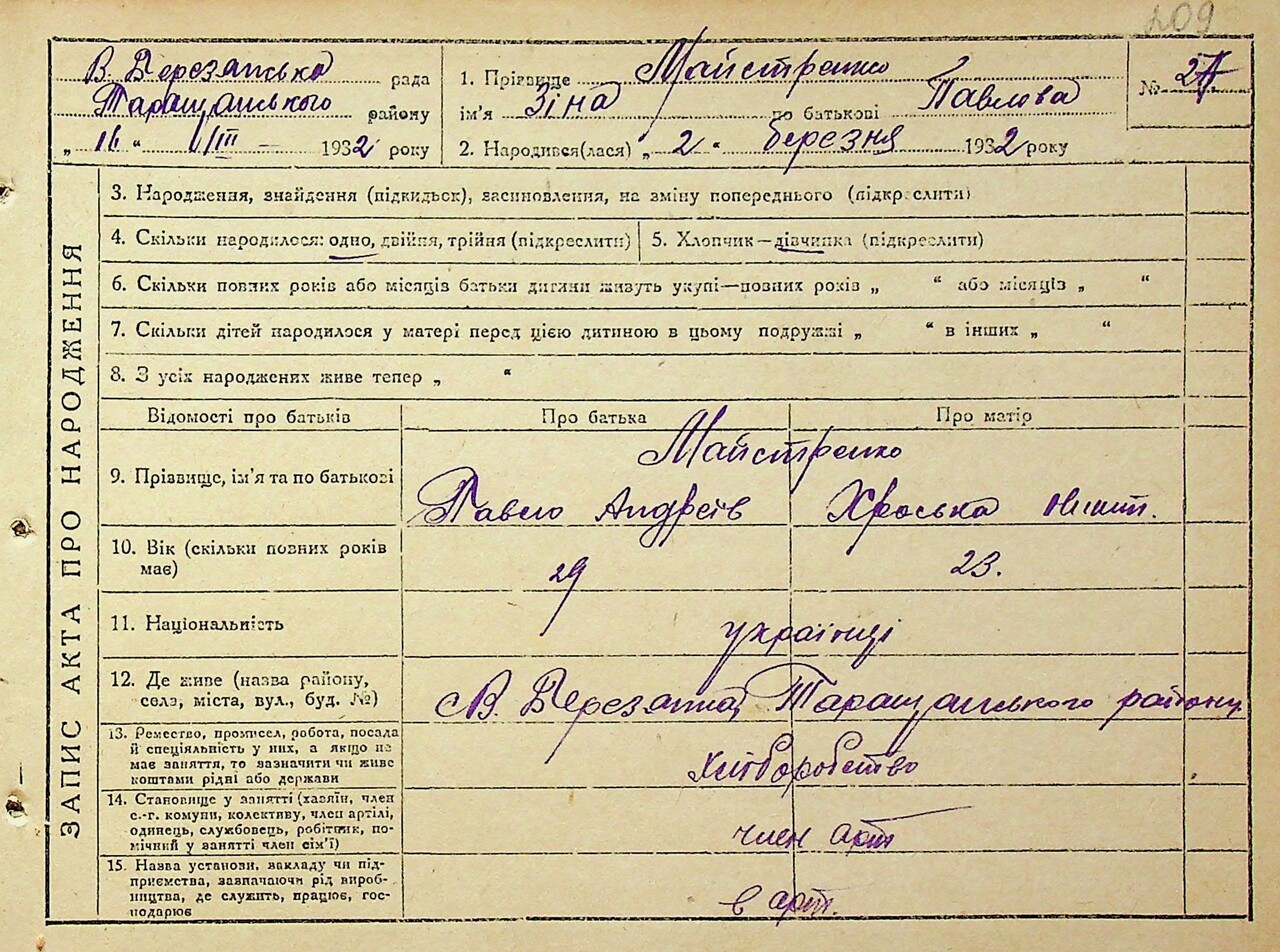 209
В. Березанська рада
Таращанського району
„ 16 “ III 1932 року
1. Прізвище Майстренко
ім'я Зіна по батькові Павлова
2. Народився(лася) „ 2 “ березня 1932 року
№ 27
ЗАПИС АКТА ПРО НАРОДЖЕННЯ
3. Народження, знайдення (підкидьск), засиновлення, на зміну попереднього (підкреслити)
4. Скільки народилося: одно, двійня, трійня (підкреслити)
5. Хлопчик—дівчинка (підкреслити)
6. Скільки повних років або місяців батьки дитини живуть укупі—повних років „ “ або місяців „ “
7. Скільки дітей народилося у матері перед цією дитиною в цьому подружжі „ “ в інших „ “
8. З усіх народжених живе тепер „ “
Відомості про батьків Про батька Про матір
9. Прізвище, ім'я та по батькові
Майстренко
Павло Андреїв Хроська Никит.
10. Вік (скільки повних років
має)
29 23.
11. Національність українці
12. Де живе (назва району,
села, міста, вул., буд. №)
В. Березанка, Таращанського району
13. Ремество, промисел, робота, посада
й спеціяльність у них, а якщо не
має заняття, то зазначити чи живе
коштами рідні або держави
Хліборобство
14. Становище у занятті (хазяїн, член
с.-г. комуни, колективу, член артілі,
одинець, службовець, робітник, по-
мічний у занятті член сім'ї)
член арт
15. Назва установи, закладу чи під-
приємства, зазначаючи рід вироб-
ництва, де служить, працює, гос-
подарює
в арт.